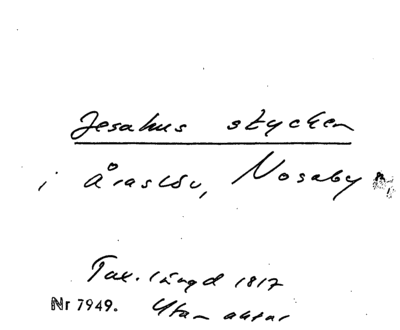 Jesahus stycken
i Åraslöv, Nosaby
Tax. längd 1817
Nr 7949. Utan